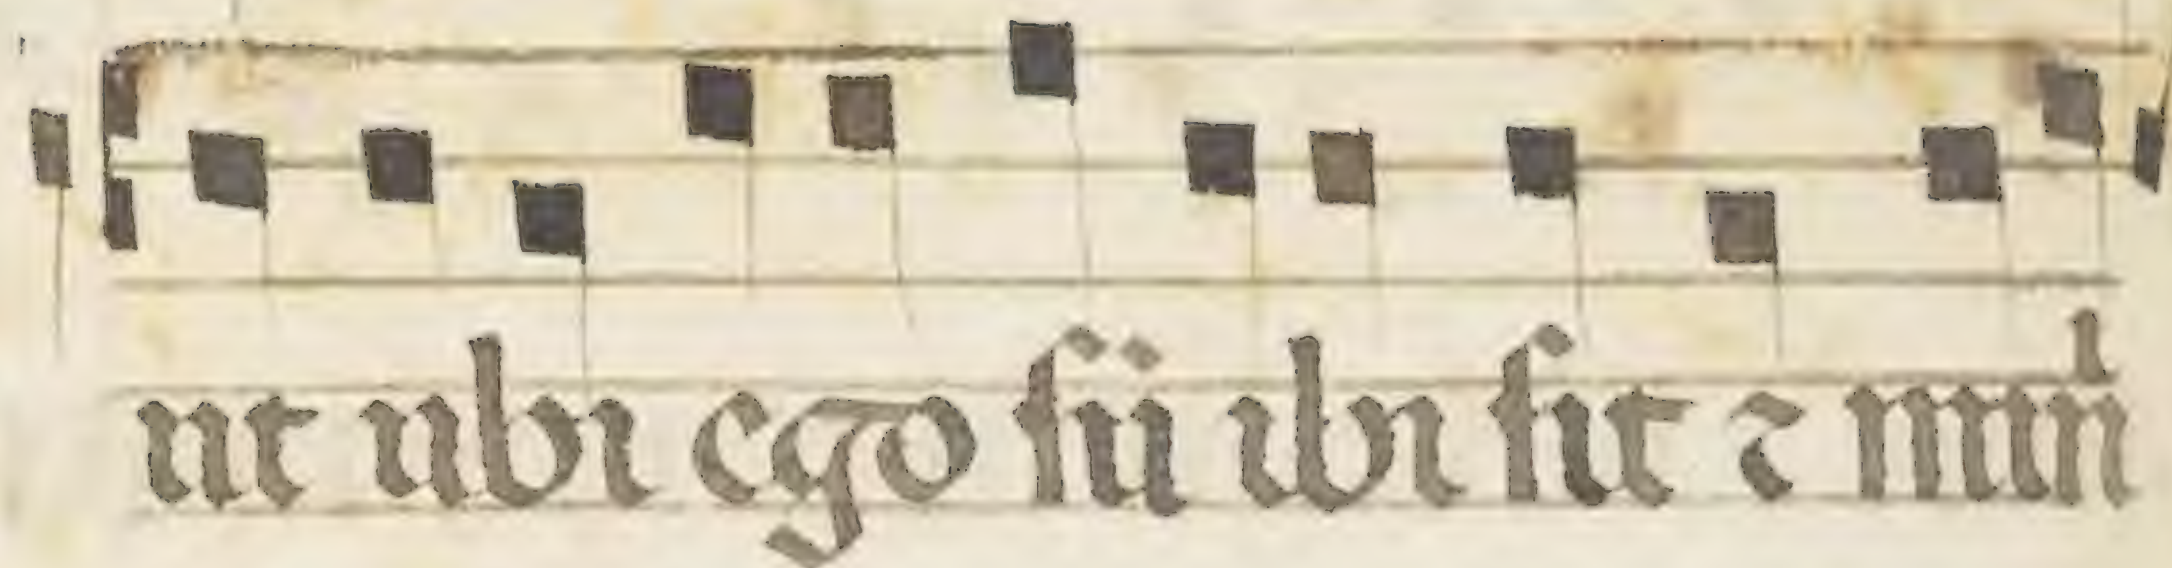 ut ubi ego sū ibi sit ⁊ mini